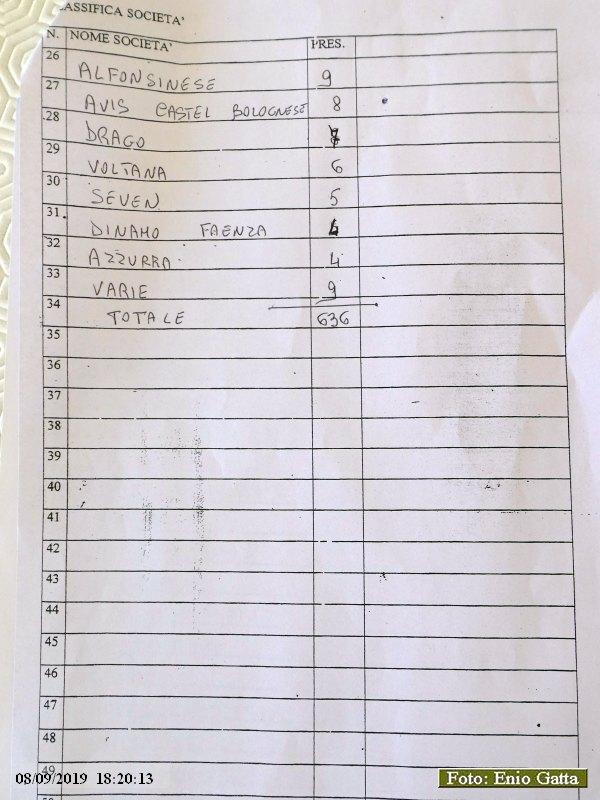 LASSIFICA SOCIETA'
N. NOME SOCIETA' PRES.
26 ALFONSINESE 9
27 AVIS CASTEL BOLOGNESE 8
28 DRAGO
29 VOLTANA 6
30 SEVEN 5
31 DINAMO FAENZA
32 AZZURRA 4
33 VARIE 9
34 TOTALE 636
35
36
37
38
39
40
41
42
43
44
45
46
47
48
49
08/09/2019 18:20:13
Foto: Enio Gatta